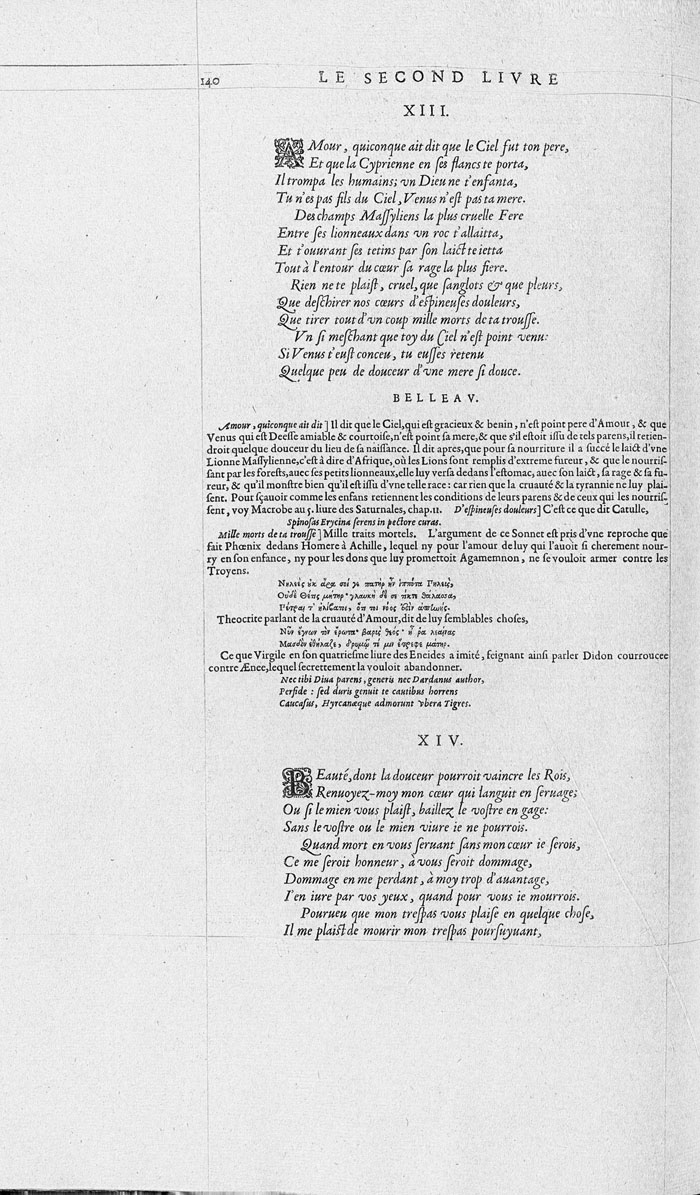 140 LE SECOND LIVRE
XIII.
AMour, quiconque ait dit que le Ciel fut ton pere,
Et que la Cyprienne en ſes flancs te porta,
Il trompa les humains; vn Dieu ne t'enfanta,
Tu n'es pas fils du Ciel, Venus n'eſt pas ta mere.
Des champs Maſſyliens la plus cruelle Fere
Entre ſes lionneaux dans vn roc t'allaitta,
Et t'ouurant ſes tetins par ſon laict te ietta
Tout à l'entour du cœur ſa rage la plus fiere.
Rien ne te plaiſt, cruel, que ſanglots & que pleurs,
Que deſchirer nos cœurs d'eſpineuſes douleurs,
Que tirer tout d'vn coup mille morts de ta trouſſe.
Vn ſi meſchant que toy du Ciel n'eſt point venu:
Si Venus t'euſt conceu, tu euſſes retenu
Quelque peu de douceur d'vne mere ſi douce.
BELLEAV.
Amour, quiconque ait dit] Il dit que le Ciel, qui eſt gracieux & benin, n'eſt point pere d'Amour, & que
Venus qui eſt Deeſſe amiable & courtoiſe, n'eſt point ſa mere, & que s'il eſtoit iſſu de tels parens, il retien-
droit quelque douceur du lieu de ſa naiſſance. Il dit apres, que pour ſa nourriture il a ſuccé le laict d'vne
Lionne Maſſylienne, c'eſt à dire d'Afrique, où les Lions ſont remplis d'extreme fureur, & que le nourriſ-
ſant par les foreſts, auec ſes petits lionneaux, elle luy verſa dedans l'eſtomac, auec ſon laict, ſa rage & ſa fu-
reur, & qu'il monſtre bien qu'il eſt iſſu d'vne telle race: car rien que la cruauté & la tyrannie ne luy plai-
ſent. Pour ſçauoir comme les enfans retiennent les conditions de leurs parens & de ceux qui les nourriſ-
ſent, voy Macrobe au 5. liure des Saturnales, chap. 11. D'eſpineuſes douleurs] C'eſt ce que dit Catulle,
Spinoſas Erycina ſerens in pectore curas.
Mille morts de ta trouſſe] Mille traits mortels. L'argument de ce Sonnet eſt pris d'vne reproche que
fait Phœnix dedans Homere à Achille, lequel ny pour l'amour de luy qui l'auoit ſi cherement nour-
ry en ſon enfance, ny pour les dons que luy promettoit Agamemnon, ne ſe vouloir armer contre les
Troyens.
Νηλεὲς οὐκ ἄρα σοί γε πατὴρ ἦν ἱππότα Πηλεὺς,
Οὐδὲ Θέτις μήτηρ· γλαυκὴ δέ σε τίκτε θάλασσα,
Πέτραι τ' ἠλίβατοι, ὅτι τοι νόος ἐστὶν ἀπηνής.
Theocrite parlant de la cruauté d'Amour, dit de luy ſemblables choſes,
Νῦν ἔγνων τὸν ἔρωτα· βαρὺς θεός· ἦ ῥα λεαίνας
Μασδὸν ἐθήλαζε, δρυμῷ τέ μιν ἔτρεφε μάτηρ.
Ce que Virgile en ſon quatrieſme liure des Eneides a imité, feignant ainſi parler Didon courroucee
contre Ænee, lequel ſecrettement la vouloit abandonner.
Nec tibi Diua parens, generis nec Dardanus author,
Perfide: ſed duris genuit te cautibus horrens
Caucaſus, Hyrcanæque admorunt vbera Tigres.
XIV.
BEauté, dont la douceur pourroit vaincre les Rois,
Renuoyez-moy mon cœur qui languit en ſeruage;
Ou ſi le mien vous plaiſt, baillez le voſtre en gage:
Sans le voſtre ou le mien viure ie ne pourrois.
Quand mort en vous ſeruant ſans mon cœur ie ſerois,
Ce me ſeroit honneur, à vous ſeroit dommage,
Dommage en me perdant, à moy trop d'auantage,
I'en iure par vos yeux, quand pour vous ie mourrois.
Pourueu que mon treſpas vous plaiſe en quelque choſe,
Il me plaiſt de mourir mon treſpas pourſuyuant,